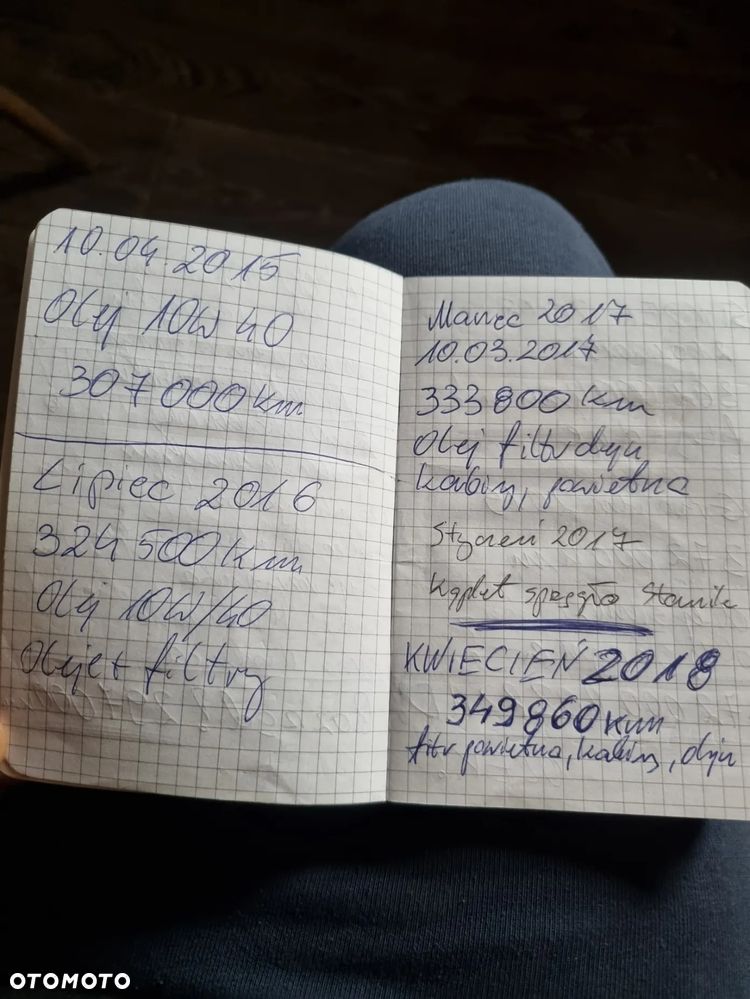 10.04.2015
Olej 10W 40
307 000 km
Lipiec 2016
324 500 km
Olej 10W/40
Olej + filtry
Marzec 2017
10.03.2017
333 800 km
Olej filtr oleju
kabiny, powietrza
Styczeń 2017
Kąplet spszęgło
KWIECIEŃ 2018
349 860 km
filtr powietrza, kabiny, oleju
OTOMOTO